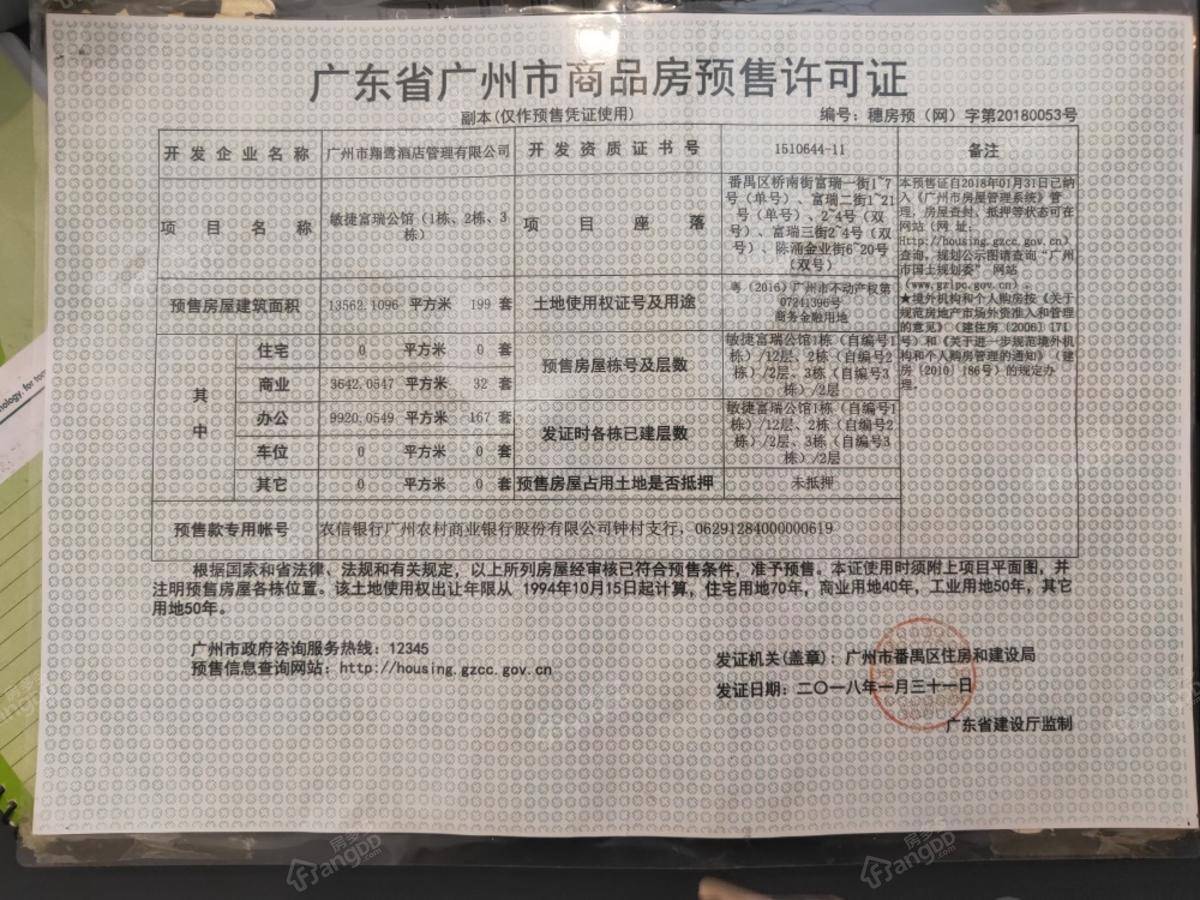 广东省广州市商品房预售许可证
副本(仅作预售凭证使用)
编号：穗房预（网）字第20180053号
开发企业名称
广州市翔鹭酒店管理有限公司
开发资质证书号
1510644-11
备注
项目名称
敏捷富瑞公馆（1栋、2栋、3
栋）
项目座落
番禺区桥南街富瑞一街1~7
号（单号）、富瑞二街1~21
号（单号）、2~4号（双
号）、富瑞三街2~4号（双
号）、陈涌金业街6~20号
（双号）
本预售证自2018年01月31日已纳
入《广州市房屋管理系统》管
理，房屋查封、抵押等状态可在
网站（网 址：
Http://housing.gzcc.gov.cn）
查询。规划公示图请查询“广州
市国土规划委” 网站
（www.gzlpc.gov.cn）。
★境外机构和个人购房按《关于
规范房地产市场外资准入和管理
的意见》（建住房〔2006〕171
号）和《关于进一步规范境外机
构和个人购房管理的通知》（建
房〔2010〕186号）的规定办
理。
预售房屋建筑面积
13562.1096 平方米 199 套
土地使用权证号及用途
粤（2016）广州市不动产权第
07241396号
商务金融用地
其中
住宅 0 平方米 0 套
商业 3642.0547 平方米 32 套
办公 9920.0549 平方米 167 套
车位 0 平方米 0 套
其它 0 平方米 0 套
预售房屋栋号及层数
敏捷富瑞公馆1栋（自编号1
栋）/12层、2栋（自编号2
栋）/2层、3栋（自编号3
栋）/2层
发证时各栋已建层数
敏捷富瑞公馆1栋（自编号1
栋）/12层、2栋（自编号2
栋）/2层、3栋（自编号3
栋）/2层
预售房屋占用土地是否抵押
未抵押
预售款专用帐号
农信银行广州农村商业银行股份有限公司钟村支行，06291284000000619
根据国家和省法律、法规和有关规定，以上所列房屋经审核已符合预售条件，准予预售。本证使用时须附上项目平面图，并
注明预售房屋各栋位置。该土地使用权出让年限从 1994年10月15日起计算，住宅用地70年，商业用地40年，工业用地50年，其它
用地50年。
广州市政府咨询服务热线：12345
预售信息查询网站：http://housing.gzcc.gov.cn
发证机关(盖章)：广州市番禺区住房和建设局
发证日期：二〇一八年一月三十一日
广东省建设厅监制